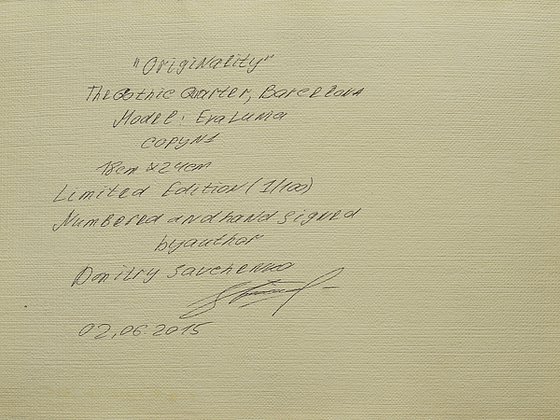 "Originality"
The Gothic Quarter, Barcelona
Model: Eva Luma
copy N1
18cm x 24cm
Limited Edition (1/100)
Numbered and hand signed
by author
Dmitry Savchenko
02.06.2015